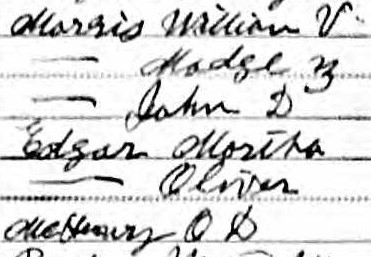 Morris William V
— Madge M
— John D
Edgar Martha
— Oliver
McHenry O D